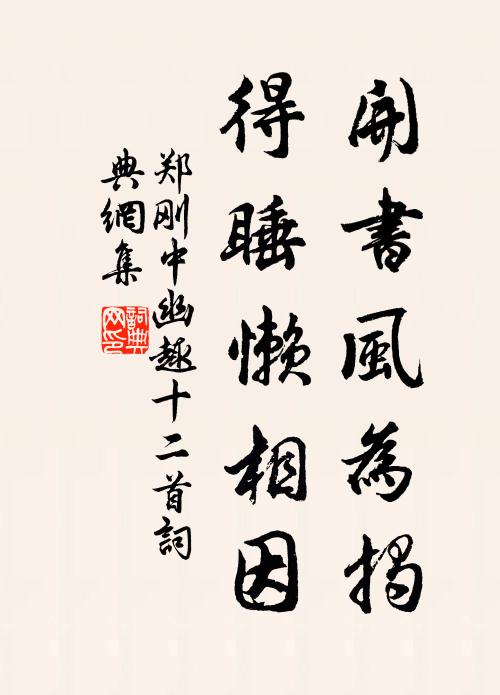 開書風為揭
得睡懶相因
郑刚中幽趣十二首詞
典網集
詞典
网印